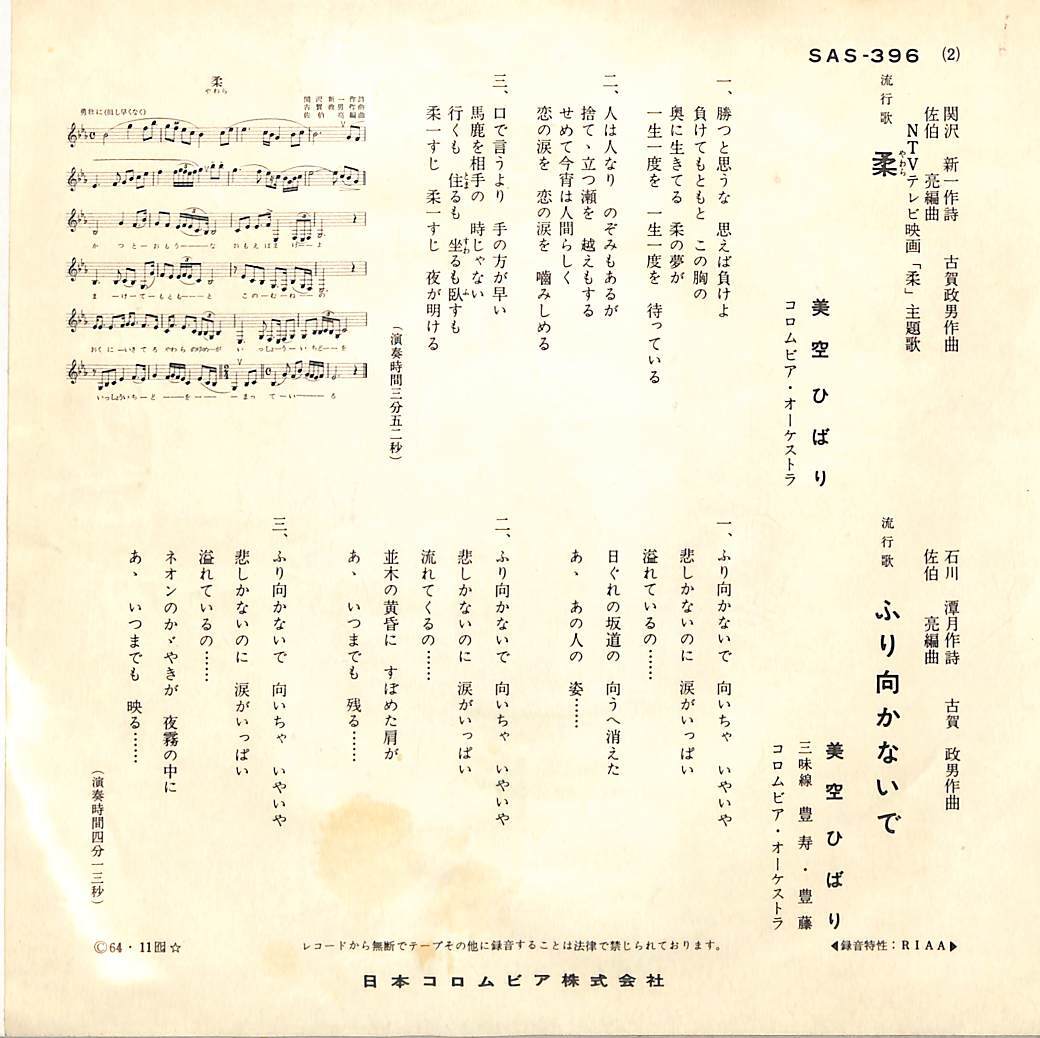 SAS-396 (2)
関沢 新一作詩 古賀政男作曲
佐伯 亮編曲
NTVテレビ映画「柔」主題歌
流行歌 柔
やわら
美空ひばり
コロムビア・オーケストラ
一、勝つと思うな 思えば負けよ
負けてもともと この胸の
奥に生きてる 柔の夢が
一生一度を 一生一度を 待っている
二、人は人なり のぞみもあるが
捨てゝ立つ瀬を 越えもする
せめて今宵は人間らしく
恋の涙を 恋の涙を 嚙みしめる
三、口で言うより 手の方が早い
馬鹿を相手の 時じゃない
行くも 住るも 坐るも臥すも
とま
すわ
ふ
柔一すじ 柔一すじ 夜が明ける
(演奏時間三分五二秒)
柔
やわら
関沢新一作詩
古賀政男作曲
佐伯亮編曲
勇壮に(但し早くなく)
かつとーおもうーーな おもえばまけーよ
まーけてーもともーと このーむねーの
おくにーいきてる やわらのゆめーが いっしょういちどーを
いっしょういちーどーをーーまってーいーーる
石川 潭月作詩 古賀 政男作曲
佐伯 亮編曲
流行歌 ふり向かないで
美空ひばり
三味線 豊寿・豊藤
コロムビア・オーケストラ
一、ふり向かないで 向いちゃ いやいや
悲しかないのに 涙がいっぱい
溢れているの……
日ぐれの坂道の 向うへ消えた
あゝ あの人の 姿……
二、ふり向かないで 向いちゃ いやいや
悲しかないのに 涙がいっぱい
流れてくるの……
並木の黄昏に すぼめた肩が
あゝ いつまでも 残る……
三、ふり向かないで 向いちゃ いやいや
悲しかないのに 涙がいっぱい
溢れているの……
ネオンのかゞやきが 夜霧の中に
あゝ いつまでも 映る……
(演奏時間四分一三秒)
◀録音特性：RIAA▶
レコードから無断でテープその他に録音することは法律で禁じられております。
Ⓒ64・11 ☆
日本コロムビア株式会社